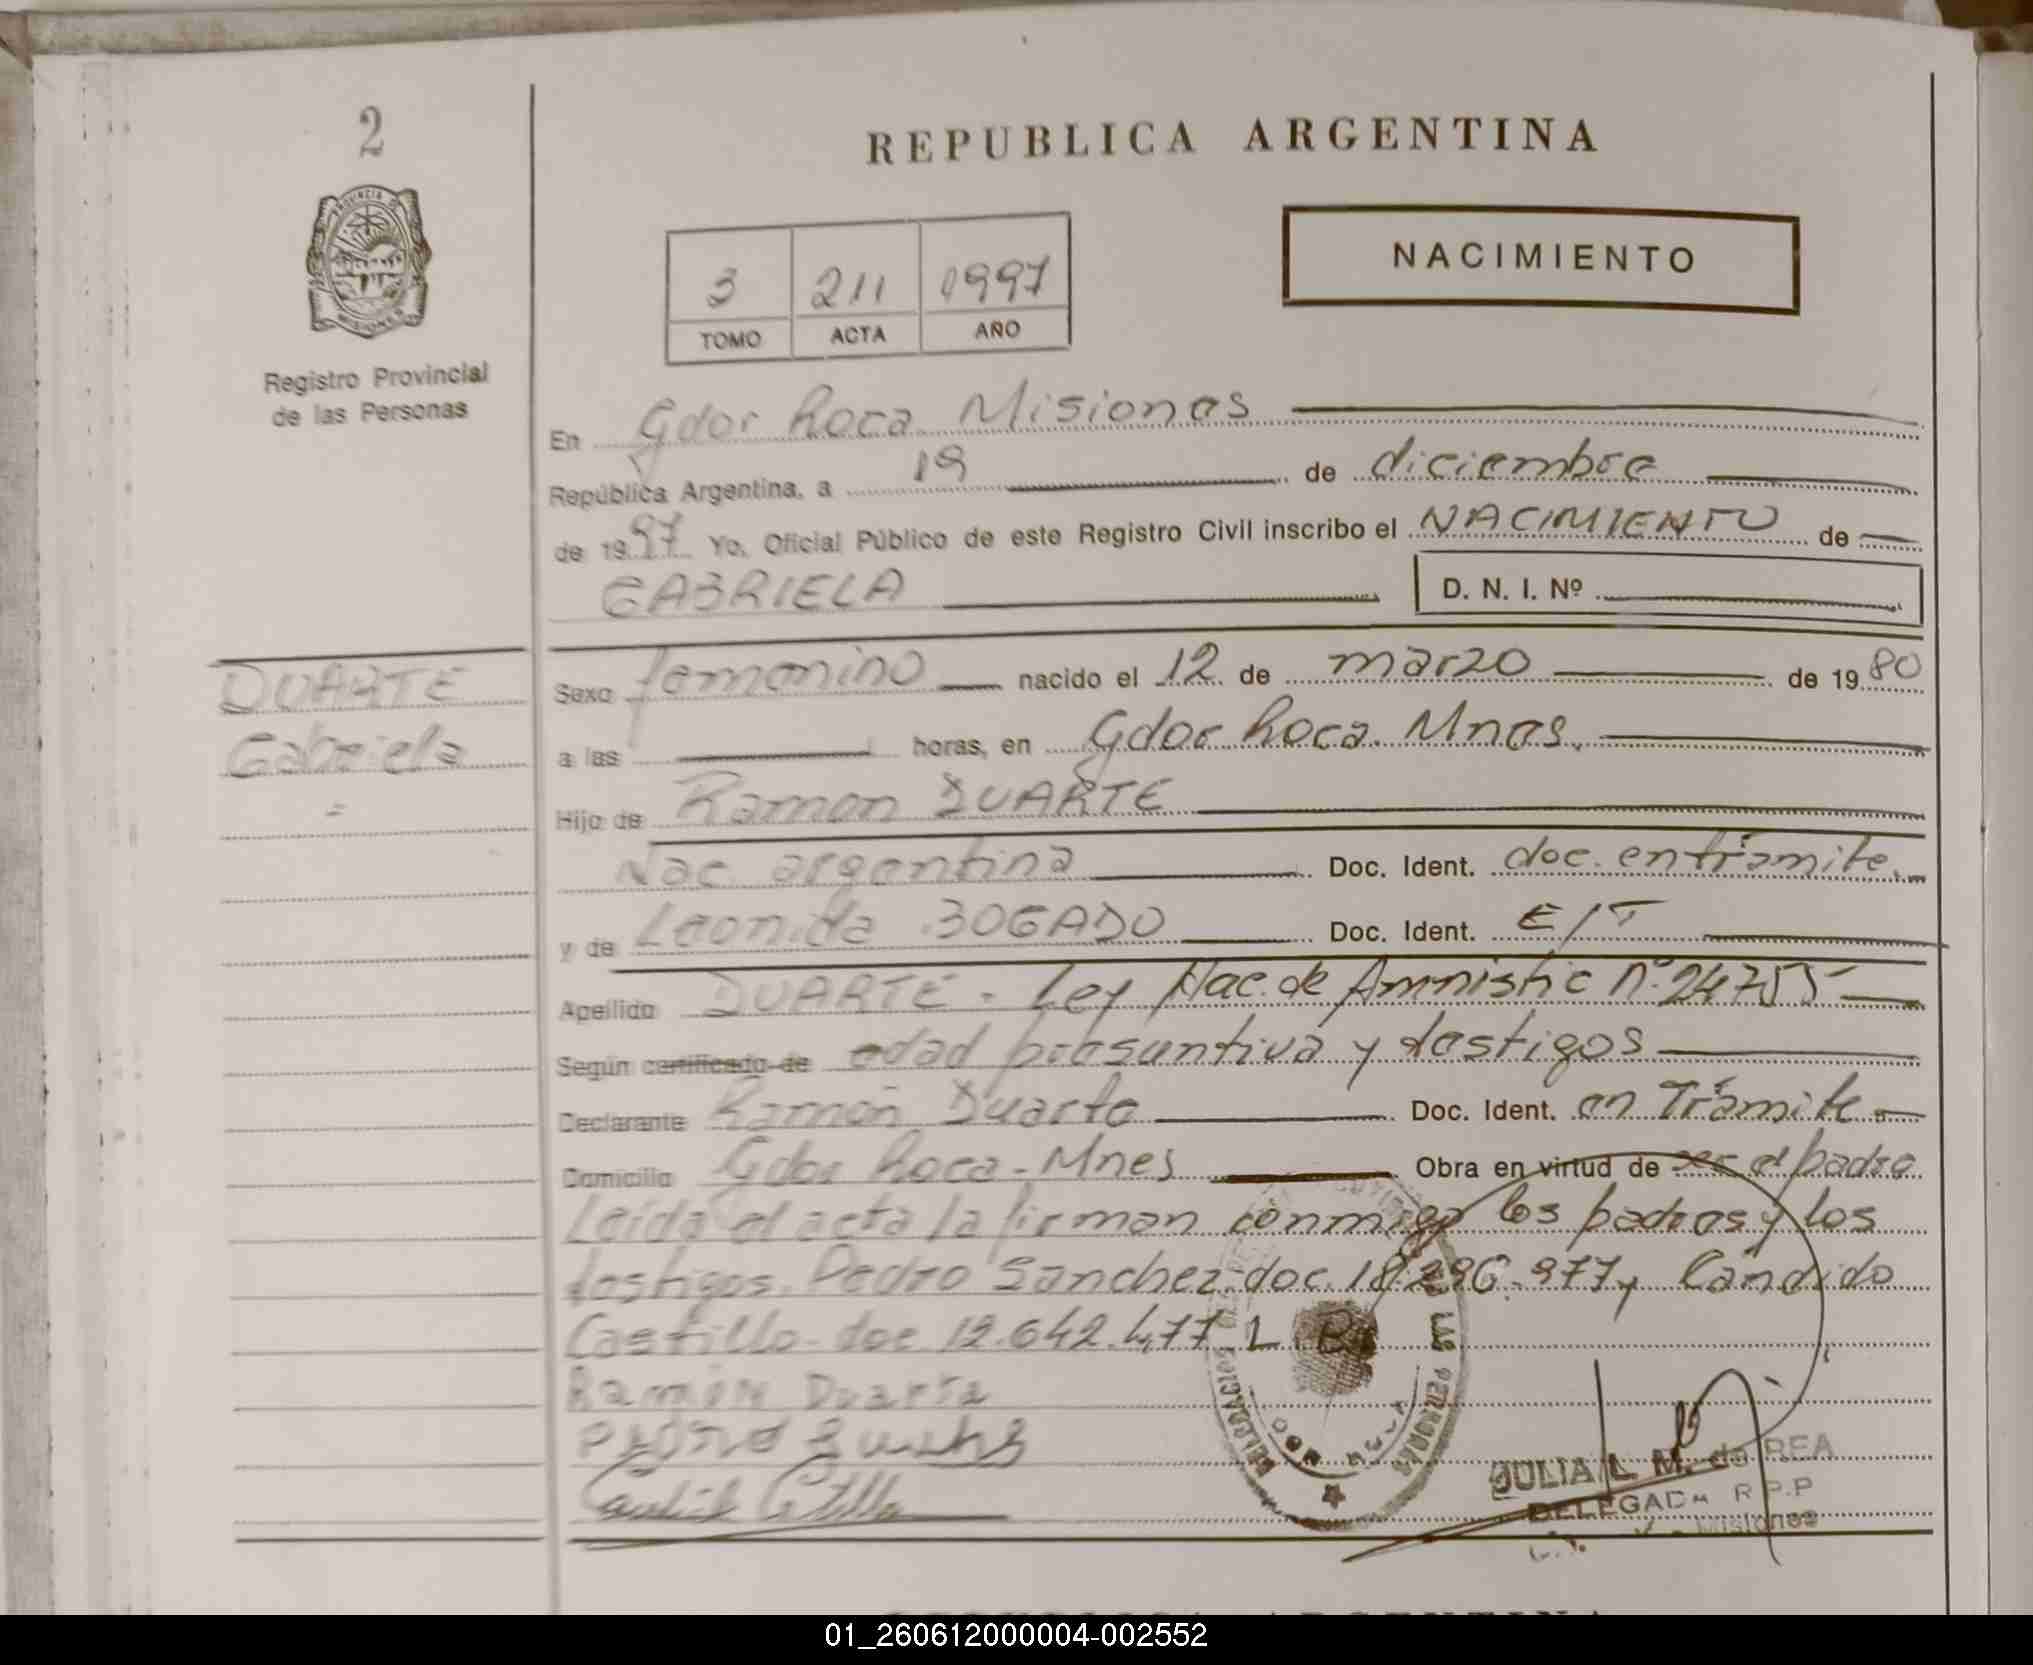 2
REPUBLICA ARGENTINA
NACIMIENTO
3 211 1997
TOMO ACTA AÑO
PROVINCIA DE
MISIONES
Registro Provincial
de las Personas
En Gdor Roca Misiones
República Argentina, a 19 de diciembre
de 1997 Yo, Oficial Público de este Registro Civil inscribo el NACIMIENTO de
GABRIELA D. N. I. Nº
DUARTE
Gabriela
=
Sexo femenino nacido el 12 de marzo de 1980
a las horas, en Gdor Roca. Mnes.
Hijo de Ramon DUARTE
Nac argentina Doc. Ident. doc. en trámite.
y de Leonida BOGADO Doc. Ident. E/T
Apellido DUARTE - Ley Nac. de Amnistie Nº 24755
Según certificado de edad presuntiva y testigos
Declarante Ramón Duarte Doc. Ident. en Trámite
Domicilio Gdor Roca - Mnes Obra en virtud de ser el padre
Leída el acta la firman conmigo los padres y los
testigos. Pedro Sanchez doc. 18.296.977 y Candido
Castillo - doc 12.642.477
Ramón Duarta
JULIA L. M. de REA
DELEGADA R.P.P
Misiones
REPUBLICA ARGENTINA
01_260612000004-002552